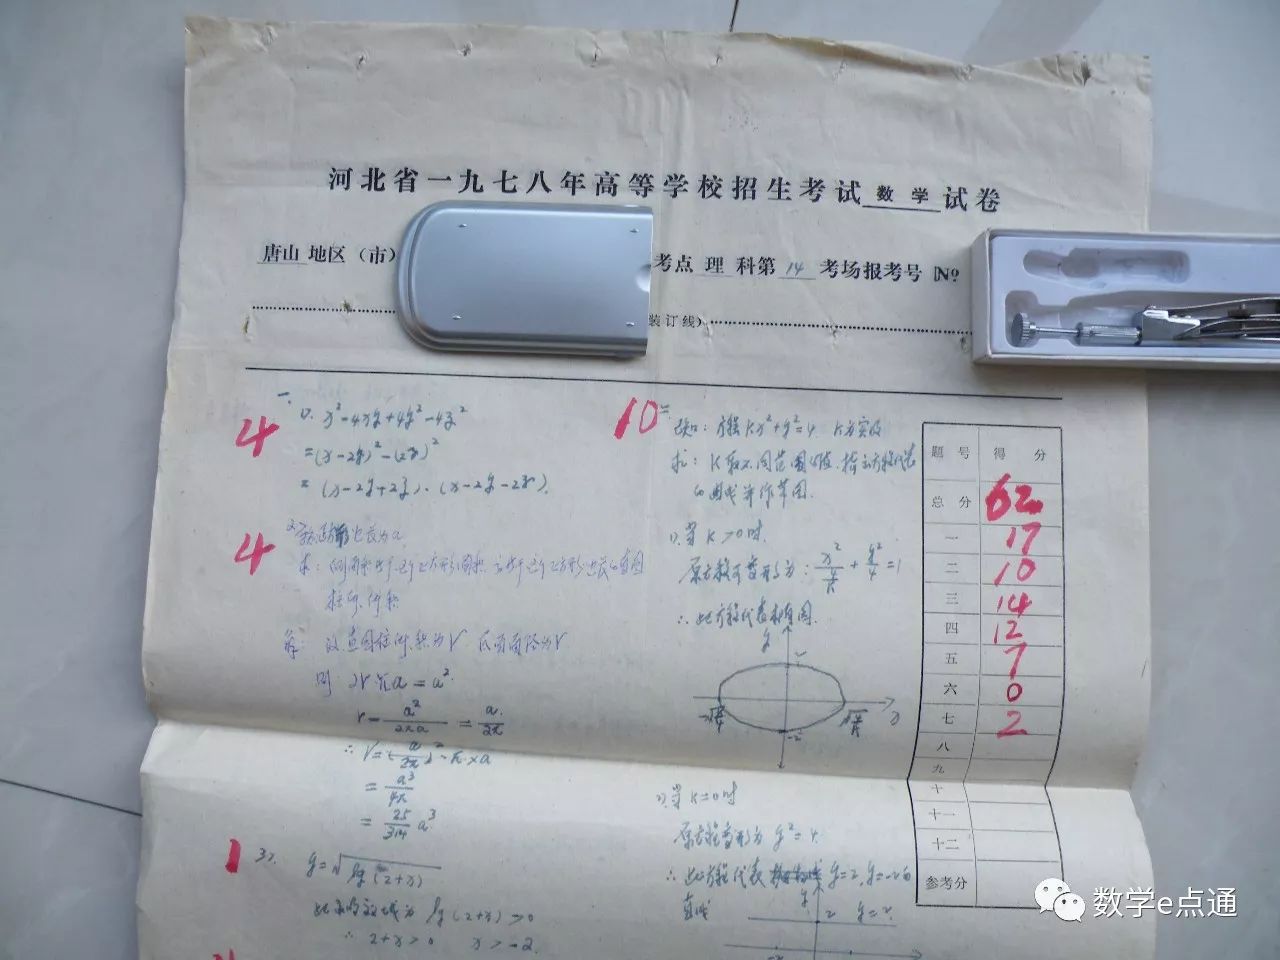 河北省一九七八年高等学校招生考试 数学 试卷
唐山 地区（市）
考点 理 科第 14 考场报考号 №
装订线）
一、
4
1). x²-4xy+4y²-4z²
=(x-2y)²-(2z)²
= (x-2y+2z)·(x-2y-2z).
4
解：设直圆柱体积为V 底面直径为r
则 2rπa = a².
r = a²/2πa = a/2π
∴ V = (a/2π)²·π×a
= a³/4π
= 25/314 a³
1
3). y=√lg(2+x)
lg(2+x)>0
∴ 2+x>0 x>-2
10
二
已知：方程kx²+y²=4 k为实数
求：k取不同范围的值，指出方程代表
的曲线并作草图.
1).当 k>0时.
原方程可变形为：x²/(4/k) + y²/4 =1
∴ 此方程代表椭圆.
y
2
x
-2
2).当 k=0时
原方程变形为 y²=4.
∴ 此方程代表 y=2, y=-2的
直线
y
2
y=2
题号 得分
总分 62
一 17
二 10
三 14
四 12
五 7
六 0
七 2
八
九
十
十一
十二
参考分
数学e点通